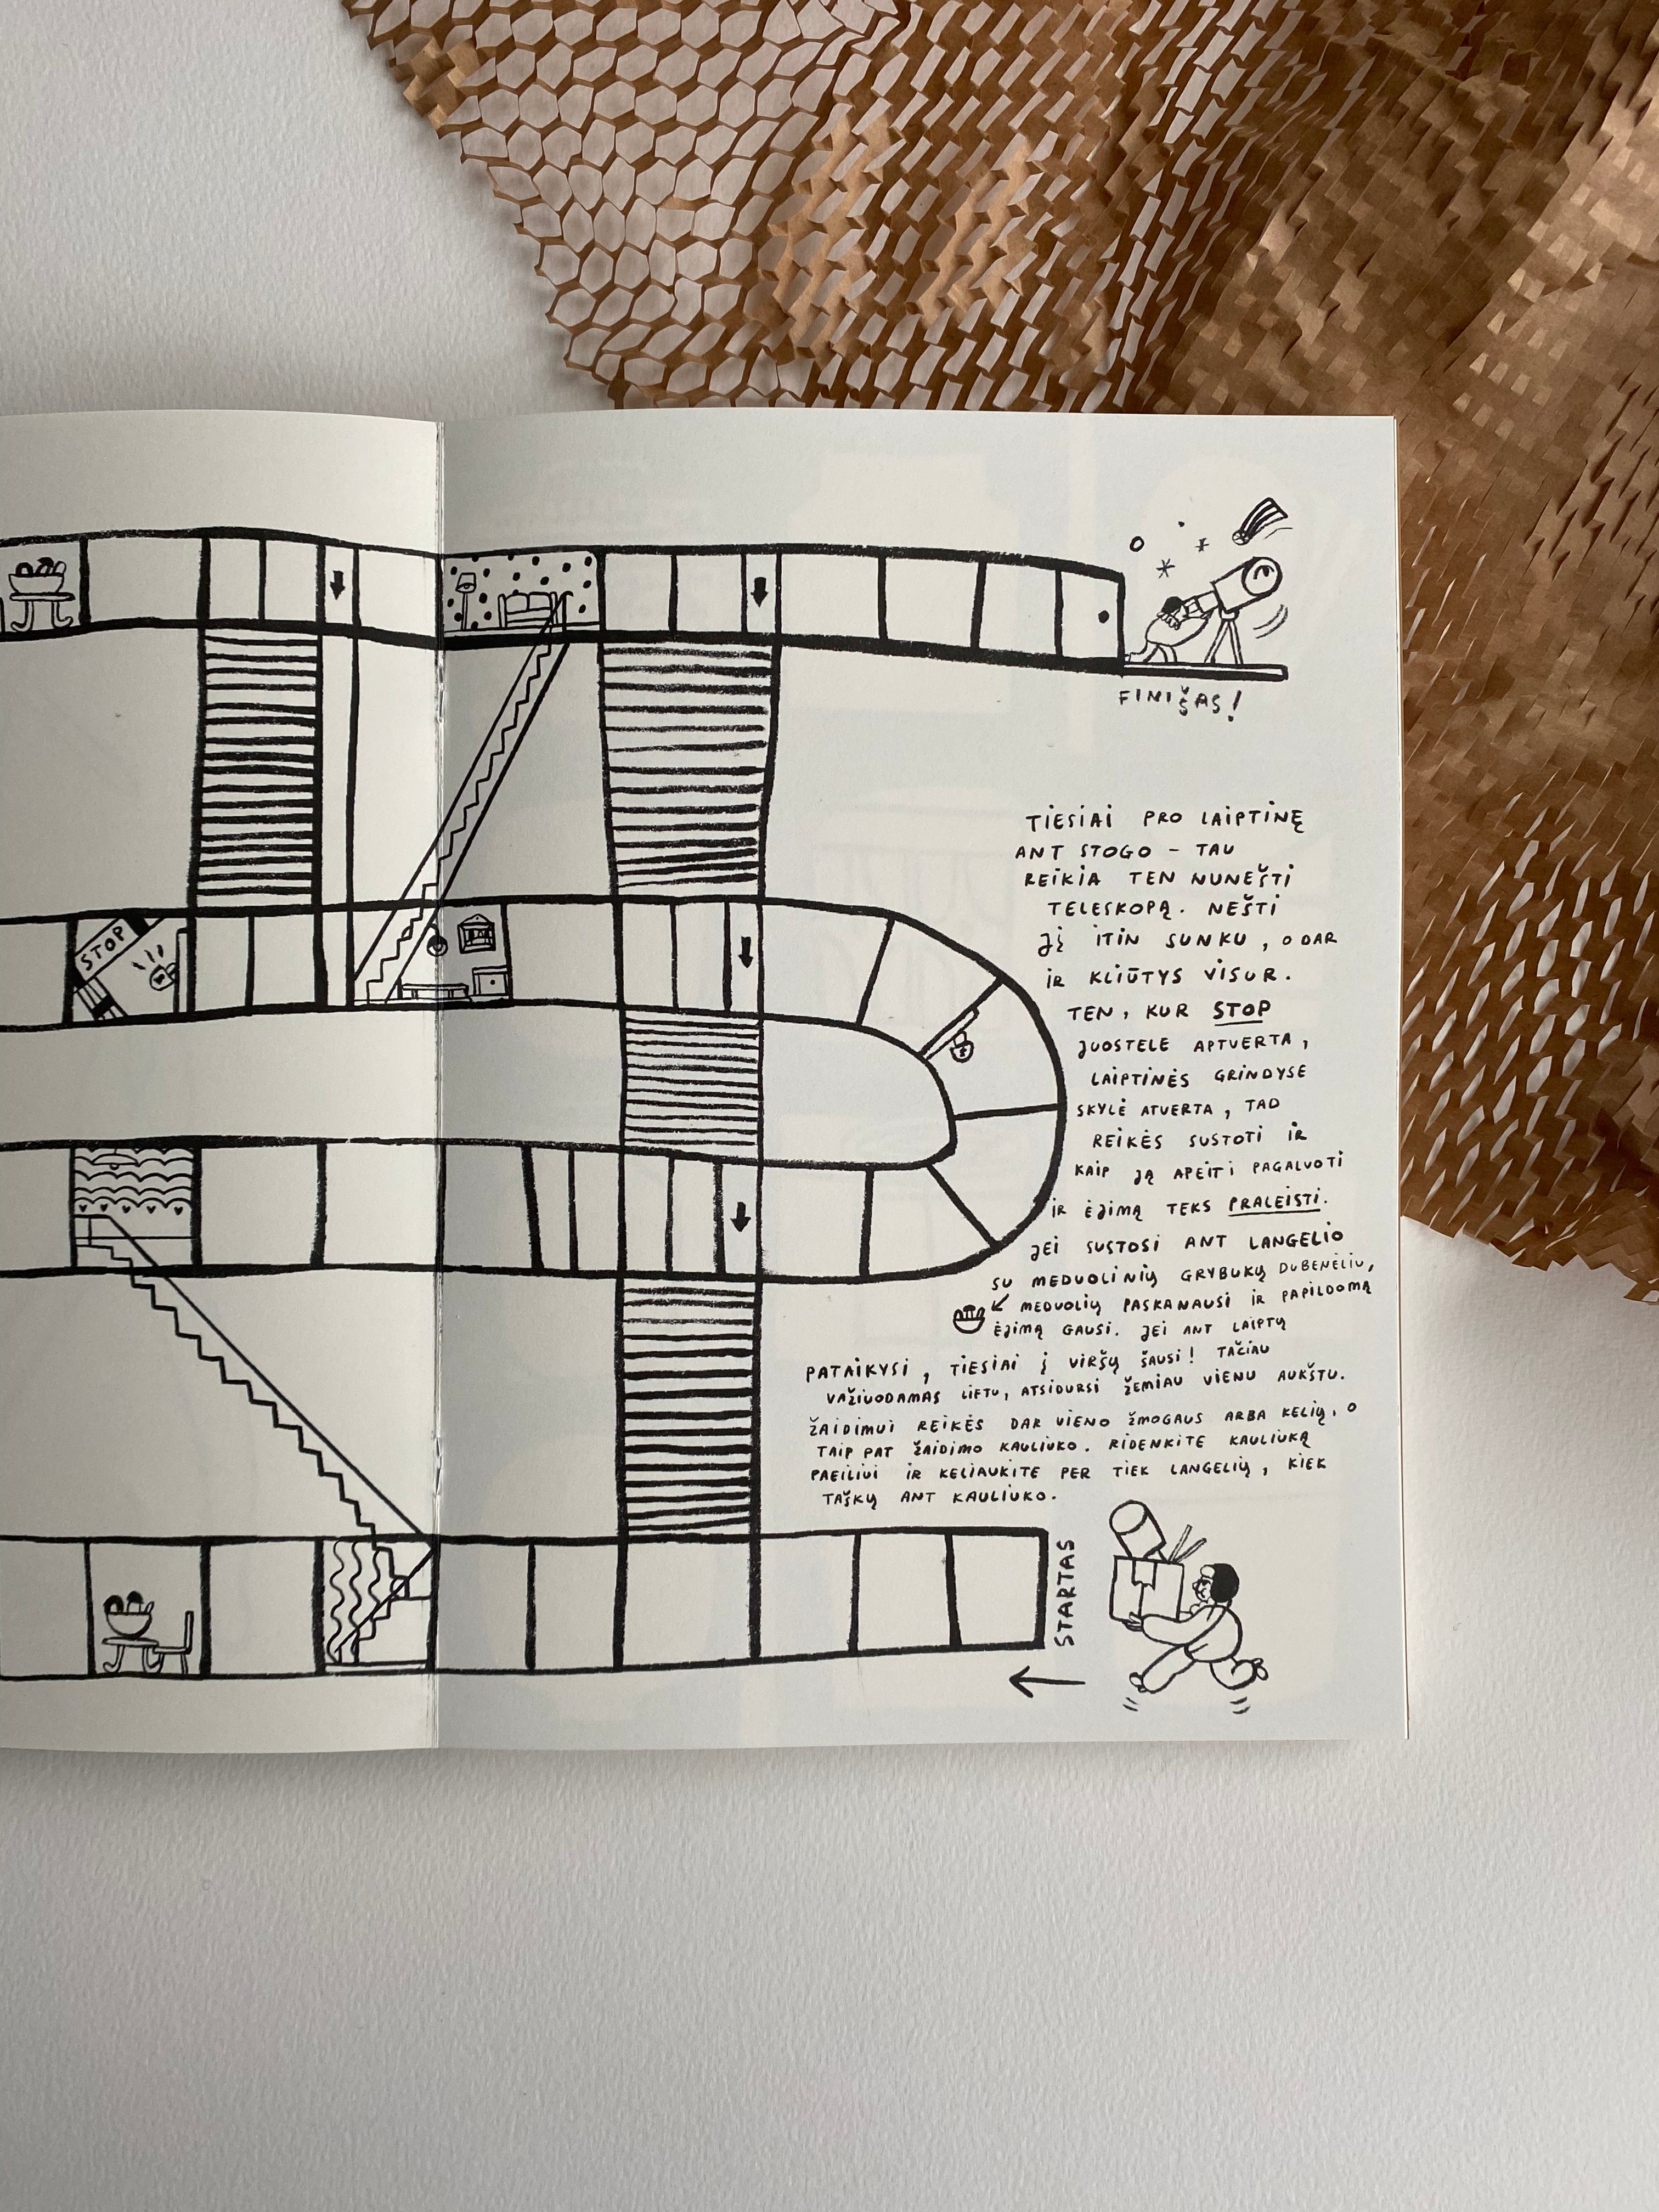 FINIŠAS!
TIESIAI PRO LAIPTINĘ
ANT STOGO – TAU
REIKIA TEN NUNEŠTI
TELESKOPĄ. NEŠTI
JĮ ITIN SUNKU, O DAR
IR KLIŪTYS VISUR.
TEN, KUR STOP
JUOSTELE APTVERTA,
LAIPTINĖS GRINDYSE
SKYLĖ ATVERTA, TAD
REIKĖS SUSTOTI IR
KAIP JĄ APEITI PAGALVOTI
IR ĖJIMĄ TEKS PRALEISTI.
JEI SUSTOSI ANT LANGELIO
SU MEDUOLINIŲ GRYBUKŲ DUBENĖLIU,
MEDUOLIŲ PASKANAUSI IR PAPILDOMĄ
ĖJIMĄ GAUSI. JEI ANT LAIPTŲ
PATAIKYSI, TIESIAI Į VIRŠŲ ŠAUSI! TAČIAU
VAŽIUODAMAS LIFTU, ATSIDURSI ŽEMIAU VIENU AUKŠTU.
ŽAIDIMUI REIKĖS DAR VIENO ŽMOGAUS ARBA KELIŲ, O
TAIP PAT ŽAIDIMO KAULIUKO. RIDENKITE KAULIUKĄ
PAEILIUI IR KELIAUKITE PER TIEK LANGELIŲ, KIEK
TAŠKŲ ANT KAULIUKO.
STOP
STARTAS